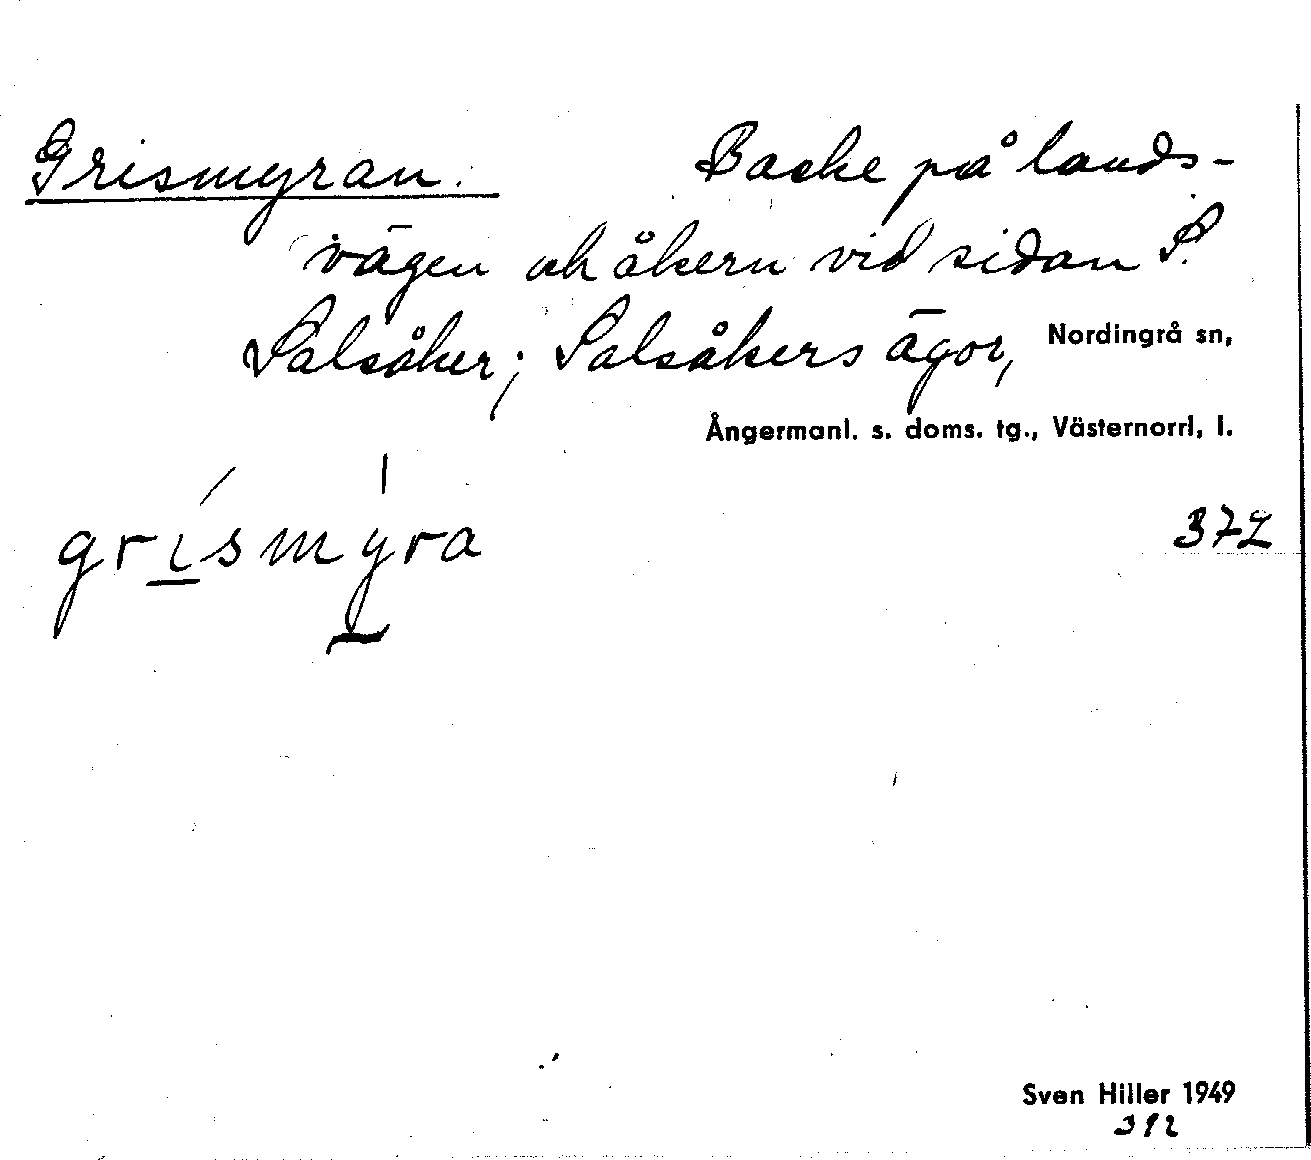 Grismyran. Backe på lands-
vägen och åkern vid sidan S.
Salsåker; Salsåkers ägor, Nordingrå sn,
Ångermanl. s. doms. tg., Västernorrl, l.
grismyra
372
Sven Hiller 1949
392